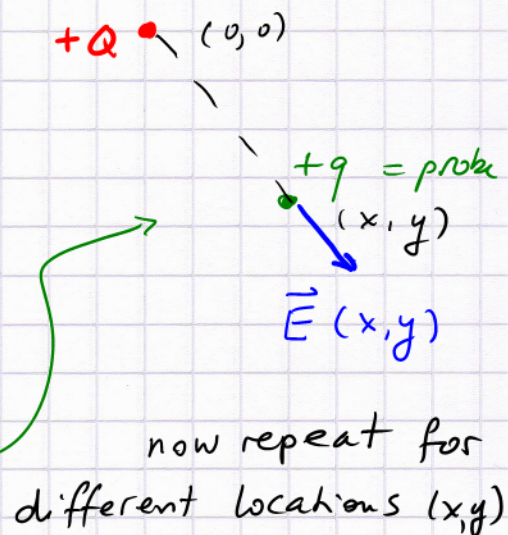 +Q (0,0)
+q = probe
(x,y)
E⃗ (x,y)
now repeat for
different locations (x,y)